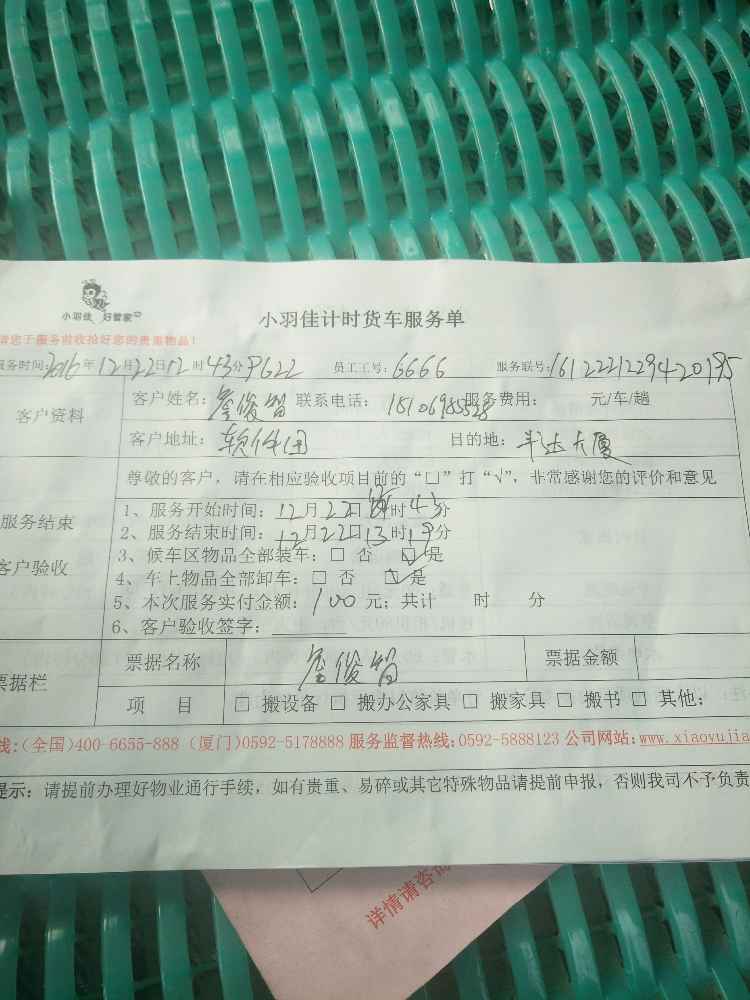 小羽佳 好管家
小羽佳计时货车服务单
请您于服务前收拾好您的贵重物品!
服务时间:2016年12月22日12时43分 员工工号:6666 服务联号:
客户资料
客户姓名:詹俊智 联系电话: 服务费用: 元/车/趟
客户地址:软件园 目的地:半达大厦
服务结束
客户验收
尊敬的客户,请在相应验收项目前的“□”打“√”,非常感谢您的评价和意见
1、服务开始时间:12月22日 时43分
2、服务结束时间:12月22日13时19分
3、候车区物品全部装车:□ 否 ☑是
4、车上物品全部卸车:□ 否 ☑是
5、本次服务实付金额:100元;共计 时 分
6、客户验收签字:
票据栏
票据名称 詹俊智 票据金额
项 目 □ 搬设备 □ 搬办公家具 □ 搬家具 □ 搬书 □ 其他:
线:(全国)400-6655-888 (厦门)0592-5178888 服务监督热线:0592-5888123 公司网站:www.xiaoyujia
提示:请提前办理好物业通行手续,如有贵重、易碎或其它特殊物品请提前申报,否则我司不予负责
详情请咨询